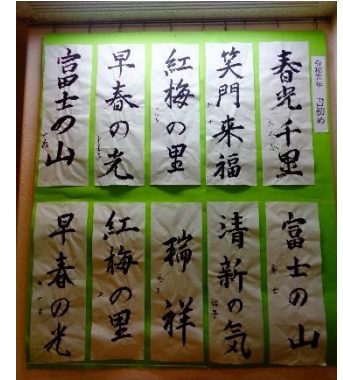 書初め
春光千里
笑門来福
紅梅の里
早春の光
富士の山
富士の山
清新の気
瑞祥
紅梅の里
早春の光